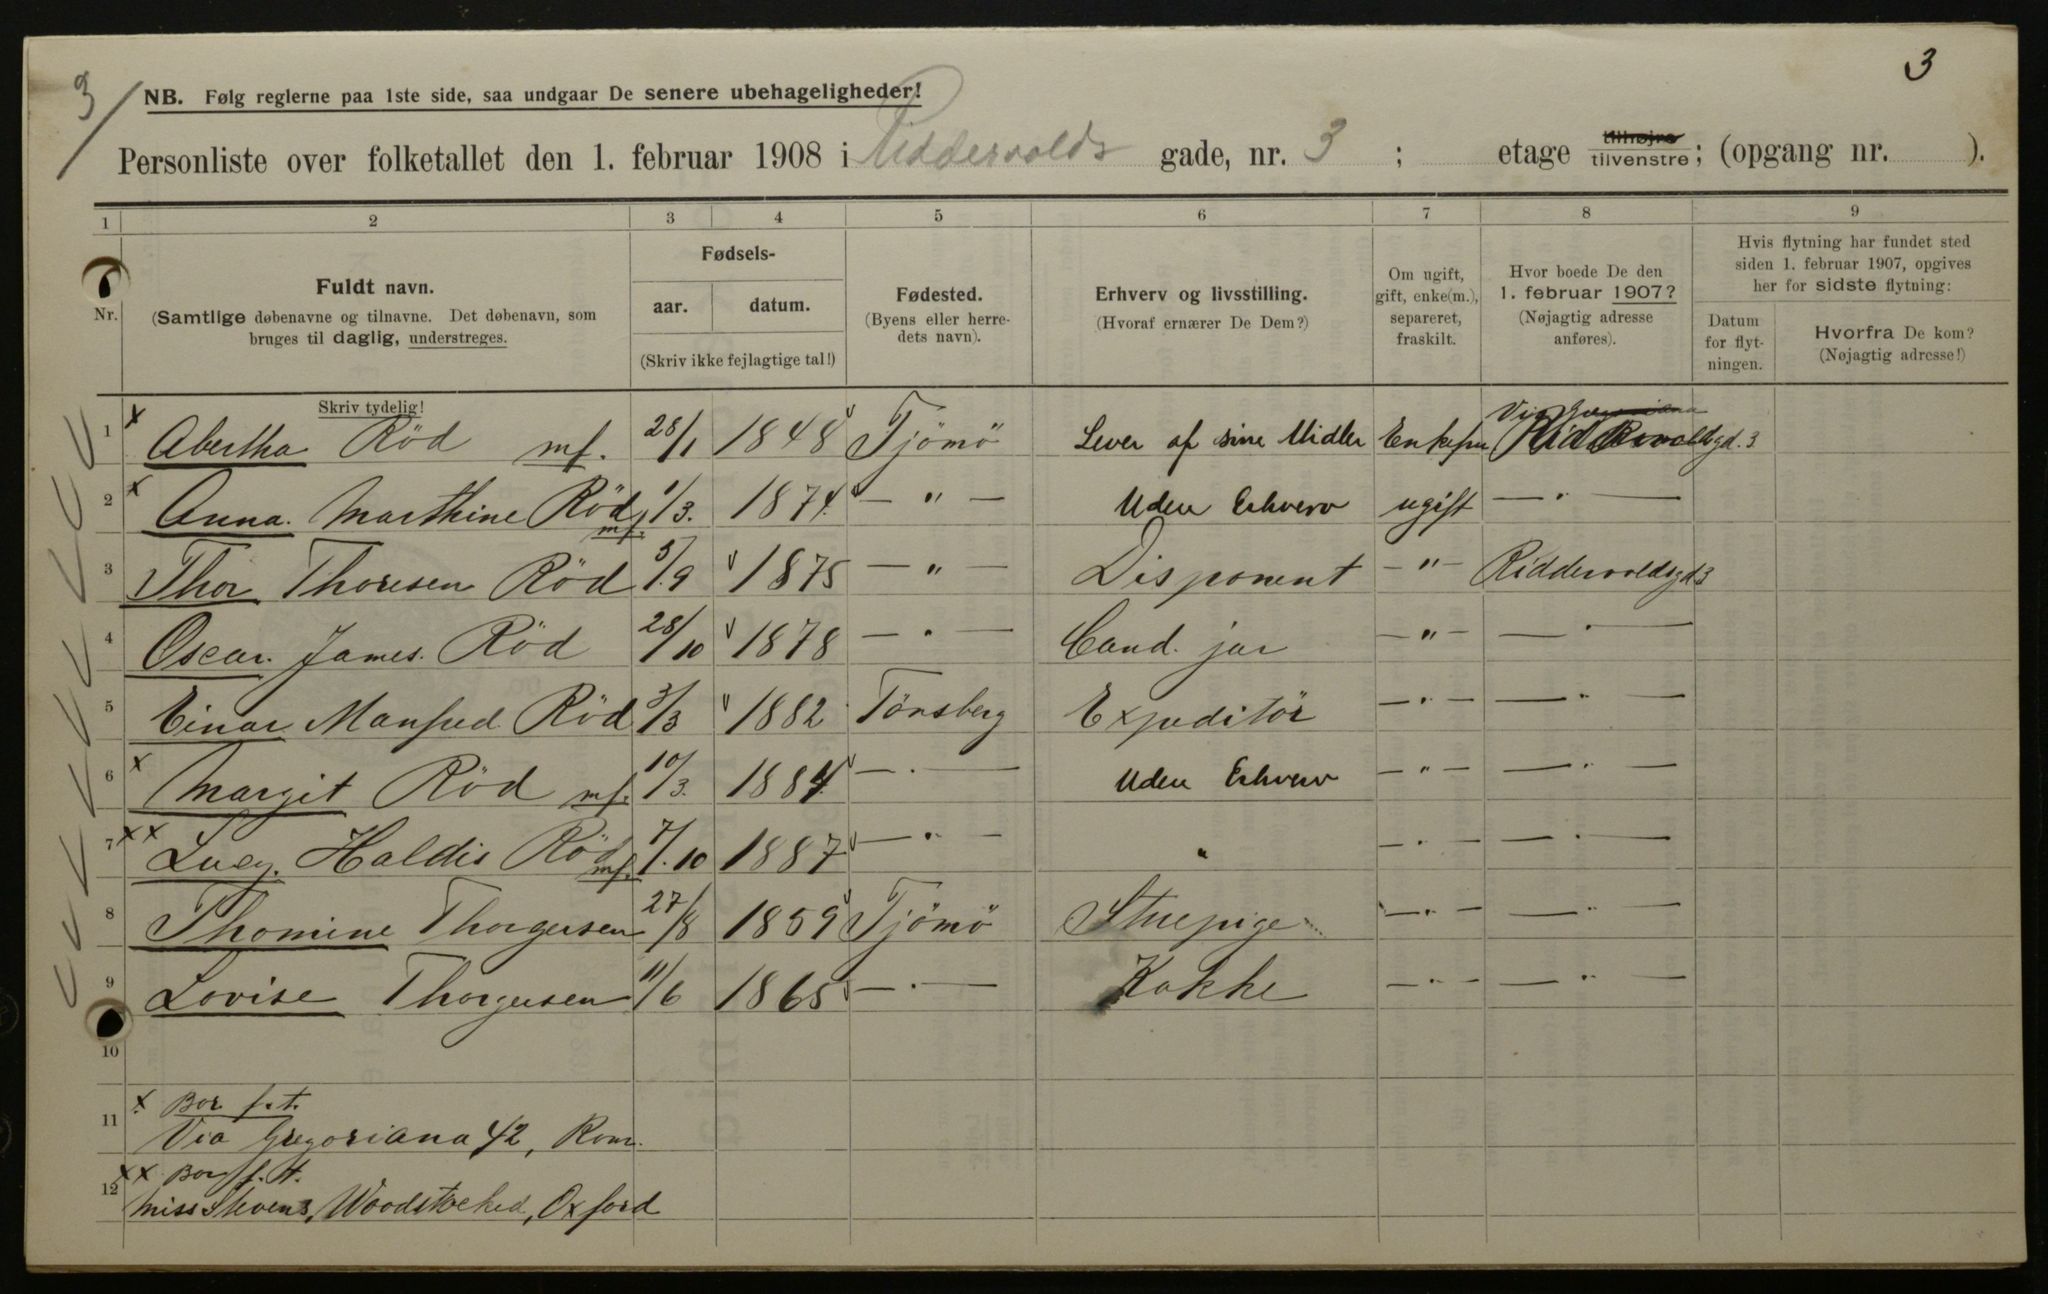 3
3
NB. Følg reglerne paa 1ste side, saa undgaar De senere ubehageligheder!
Personliste over folketallet den 1. februar 1908 i Riddervolds gade, nr. 3 ; etage tilhøjre tilvenstre; (opgang nr. ).
1 2 3 4 5 6 7 8 9
Nr.
Fuldt navn.
(Samtlige døbenavne og tilnavne. Det døbenavn, som
bruges til daglig, understreges.
Skriv tydelig!
Fødsels-
aar. datum.
(Skriv ikke fejlagtige tal!)
Fødested.
(Byens eller herre-
dets navn).
Erhverv og livsstilling.
(Hvoraf ernærer De Dem?)
Om ugift,
gift, enke(m.),
separeret,
fraskilt.
Hvor boede De den
1. februar 1907?
(Nøjagtig adresse
anføres).
Hvis flytning har fundet sted
siden 1. februar 1907, opgives
her for sidste flytning:
Datum
for flyt-
ningen.
Hvorfra De kom?
(Nøjagtig adresse!)
Via Gregoriana
1 x Abertha Röd mf. 28/1 1848 Tjömö Lever af sine Midler Enkefru Riddervoldsgd. 3
2 x Anna. Marthine Röd mf. 1/3. 1874. — " — Uden Erhverv ugift — " —
3 Thor Thoresen Röd 5/.9 1875 — " — Disponent — " — Riddervoldsgd 3
4 Oscar. James. Röd 28/10 1878 — " — Cand. jur — " — — " —
5 Einar Manfred Röd 3/3 1882 Tönsberg Expeditör — " — — " —
6 x Margit Röd mf. 10/3. 1884. — " — Uden Erhverv — " — — " —
7 xx Lucy. Haldis Röd mf. 7/.10 1887 — " — " — " — — " —
8 Thomine Thorgersen 27/8 1859 Tjömö Stuepige — " — — " —
9 Lovise Thorgersen 11/6 1865 — " — Kokke — " — — " —
10
x Bor f.t.
11 Via Gregoriana 42, Rom.
xx Bor f.t.
12 Miss Stevens, Woodstocked, Oxford